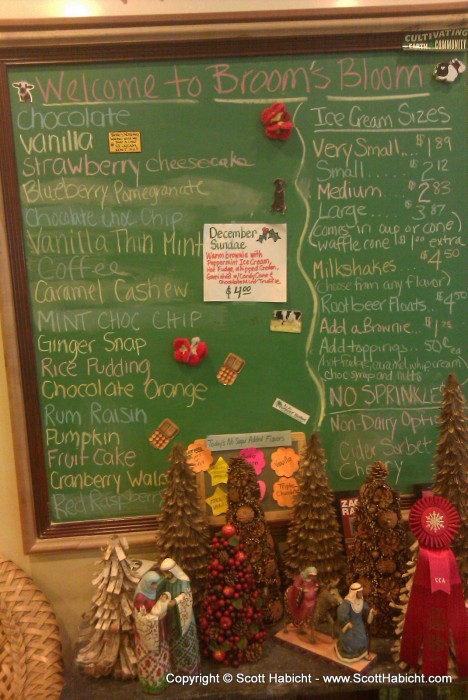 CULTIVATING
COMMUNITY
Welcome to Broom's Bloom
Chocolate
Vanilla
Strawberry Cheesecake
Blueberry Pomegranate
Chocolate Choc Chip
Vanilla Thin Mint
Coffee
Caramel Cashew
MINT CHOC CHIP
Ginger Snap
Rice Pudding
Chocolate Orange
Rum Raisin
Pumpkin
Fruit Cake
Cranberry
Red Raspberry
December
Sundae
Warm brownie with
Peppermint Ice Cream,
Hot Fudge, whipped Cream,
Candy Cane &
Chocolate Mint Truffle
$4.00
Ice Cream Sizes
Very Small... $1.89
Small..... $2.12
Medium.... $2.83
Large..... 3.87
(comes in cup or cone)
waffle cone $1.00 extra
Milkshakes.... $4.50
(choose from any flavor)
Rootbeer Floats..
Add a Brownie..
Add toppings... 50¢ ea
(hot fudge, caramel, whip cream)
choc syrup and nuts
NO SPRINKLES
Non-Dairy Option
Cider Sorbet
Cherry
Today's No Sugar Added Flavors
CCA
Copyright © Scott Habicht - www.ScottHabicht.com